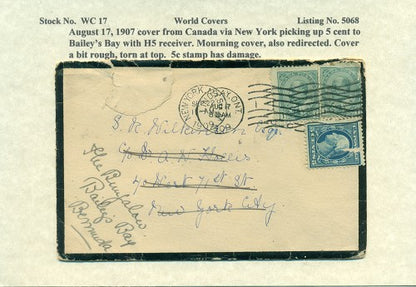 Stock No. WC 17 World Covers Listing No. 5068
August 17, 1907 cover from Canada via New York picking up 5 cent to
Bailey's Bay with H5 receiver. Mourning cover, also redirected. Cover
a bit rough, torn at top. 5c stamp has damage.
NEW YORK
AUG 17
1907
S. K. Wilkinson Esq.
West 71 St.
New York City.
The Bungalow
Bailey's Bay
Bermuda